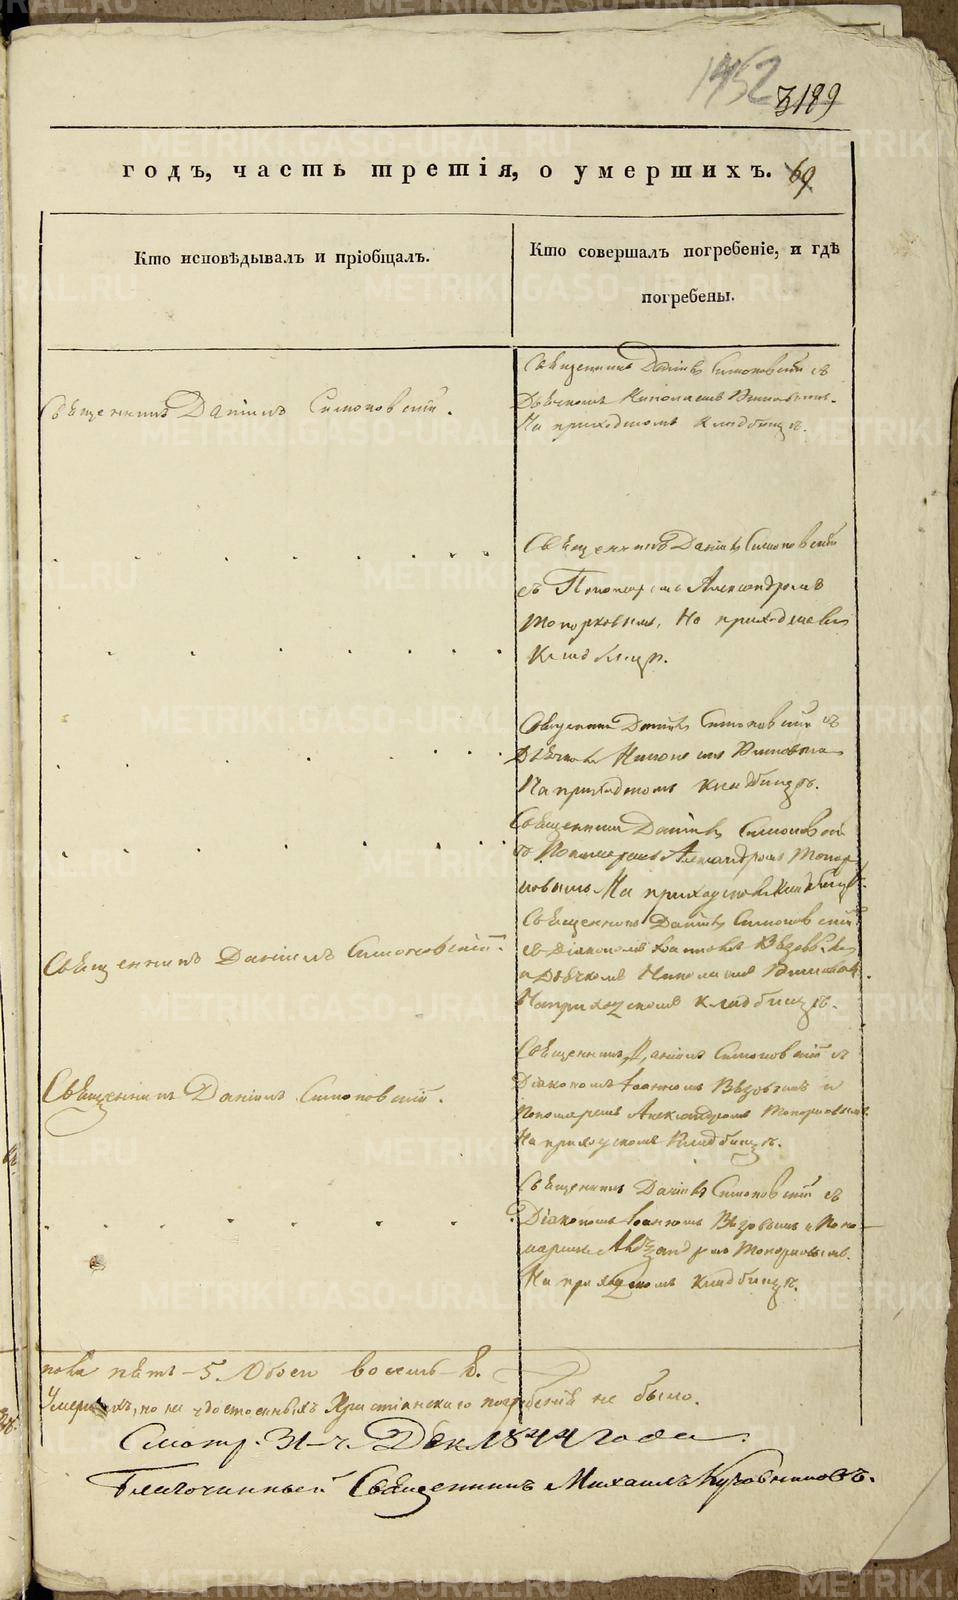 1452
3189
годъ, часть третія, о умершихъ. 69
Кто исповѣдывалъ и пріобщалъ.
Кто совершалъ погребеніе, и гдѣ
погребены.
Священникъ Даніилъ Симоновскій съ
Дьячкомъ Николаемъ
На приходскомъ кладбищѣ.
Священникъ Даніилъ Симоновскій.
Священникъ Даніилъ Симоновскій
съ Пономаремъ Александромъ
Топорковымъ. На приходскомъ
Кладбищѣ.
Священникъ Даніилъ Симоновскій съ
Дьячкомъ Николаемъ
На приходскомъ кладбищѣ.
Священникъ Даніилъ Симоновскій
съ Пономаремъ Александромъ Топор
ковымъ На приходскомъ Кладбищѣ.
Священникъ Даніилъ Симоновскій
съ Діакономъ Іоанномъ
и Дьячкомъ Николаемъ
На приходскомъ кладбищѣ.
Священникъ Даніилъ Симоновскій.
Священникъ Даніилъ Симоновскій съ
Діакономъ Іоанномъ и
Пономаремъ Александромъ Топорковымъ
На приходскомъ Кладбищѣ.
Священникъ Даніилъ Симоновскій.
Священникъ Даніилъ Симоновскій съ
Діакономъ Іоанномъ и Поно
маремъ Александромъ Топорковымъ.
На приходскомъ кладбищѣ.
пять – 5. Обоего восемь – 8.
Умершихъ, но не удостоенныхъ Христіанскаго погребенія не было.
Смотр. 31-ч. Дек. 1844 года.
Благочинный Священникъ Михаилъ
METRIKI.GASO-URAL.RU